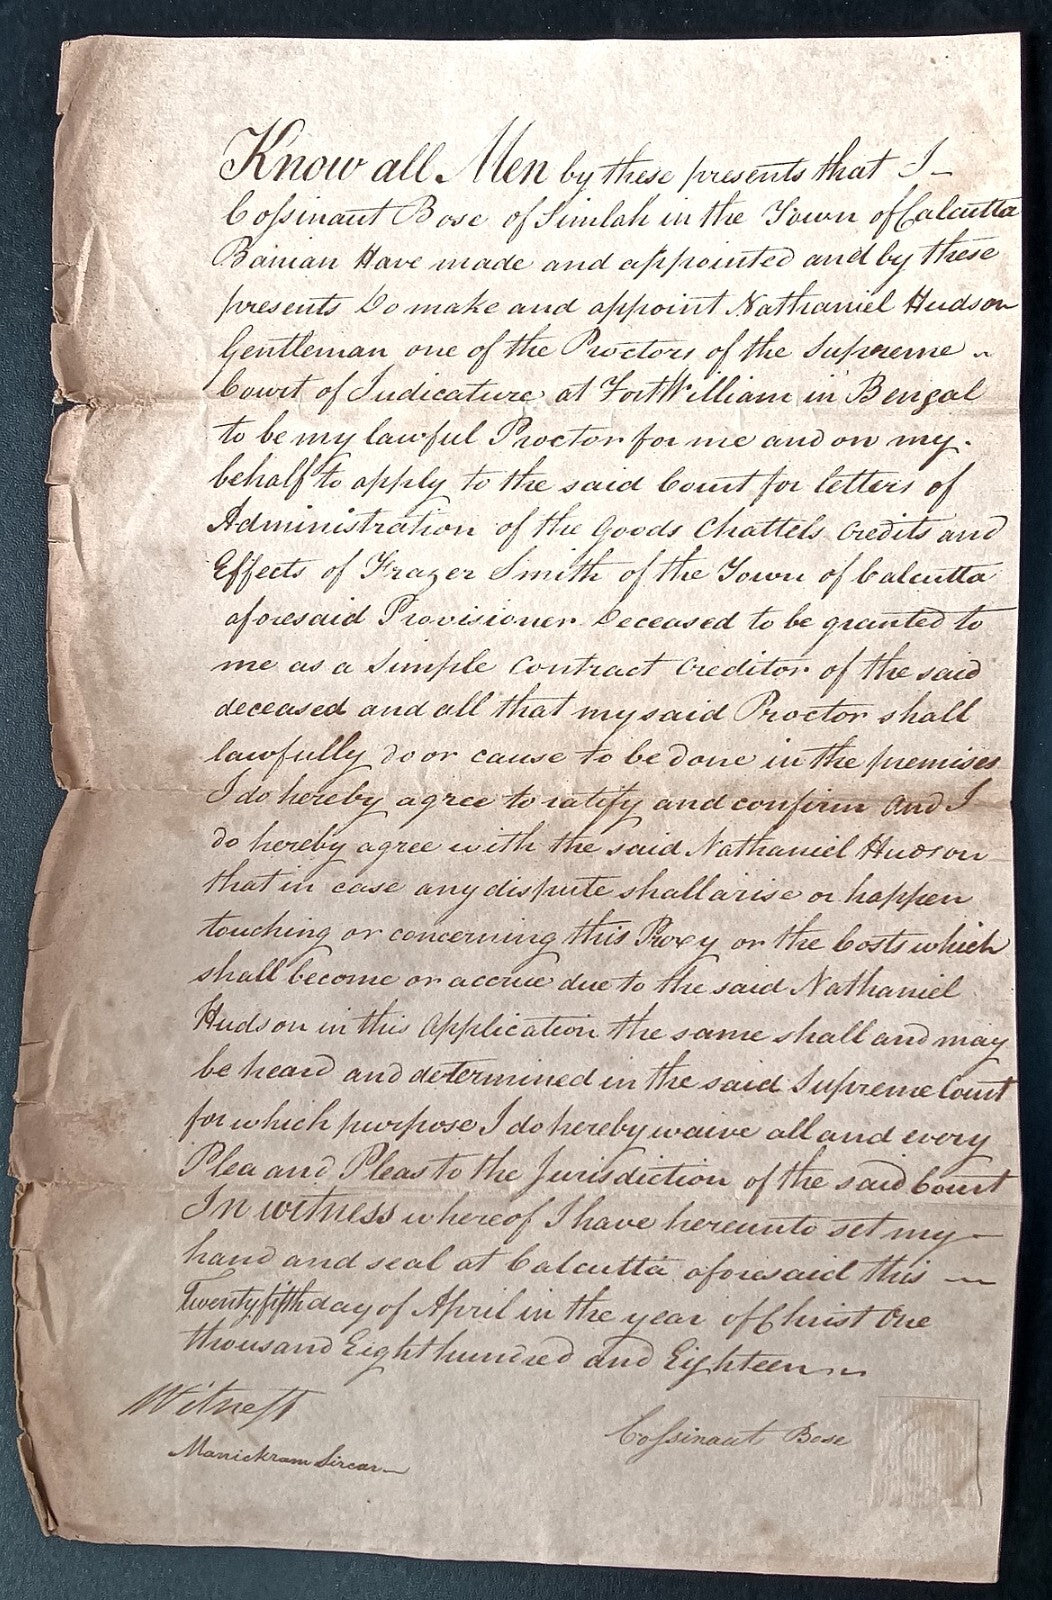 Know all Men by these presents that I
Coſsinaut Bose of Simlah in the Town of Calcutta
Banian Have made and appointed and by these
presents Do make and appoint Nathaniel Hudson
Gentleman one of the Proctors of the Supreme
Court of Judicature at Fort William in Bengal
to be my lawful Proctor for me and on my
behalf to apply to the said Court for letters of
Administration of the Goods Chattels Credits and
Effects of Frazer Smith of the Town of Calcutta
aforesaid Provisioner Deceased to be granted to
me as a Simple Contract Creditor of the said
deceased and all that my said Proctor shall
lawfully do or cause to be done in the premises
I do hereby agree to ratify and confirm And I
do hereby agree with the said Nathaniel Hudson
that in case any dispute shall arise or happen
touching or concerning this Proxy or the Costs which
shall become or accrue due to the said Nathaniel
Hudson in this Application the same shall and may
be heard and determined in the said Supreme Court
for which purpose I do hereby waive all and every
Plea and Pleas to the Jurisdiction of the said Court
In witness whereof I have hereunto set my
hand and seal at Calcutta aforesaid this
Twenty fifth day of April in the year of Christ One
thousand Eight hundred and Eighteen
Witneſs
Manickram Sircar
Coſsinaut Bose